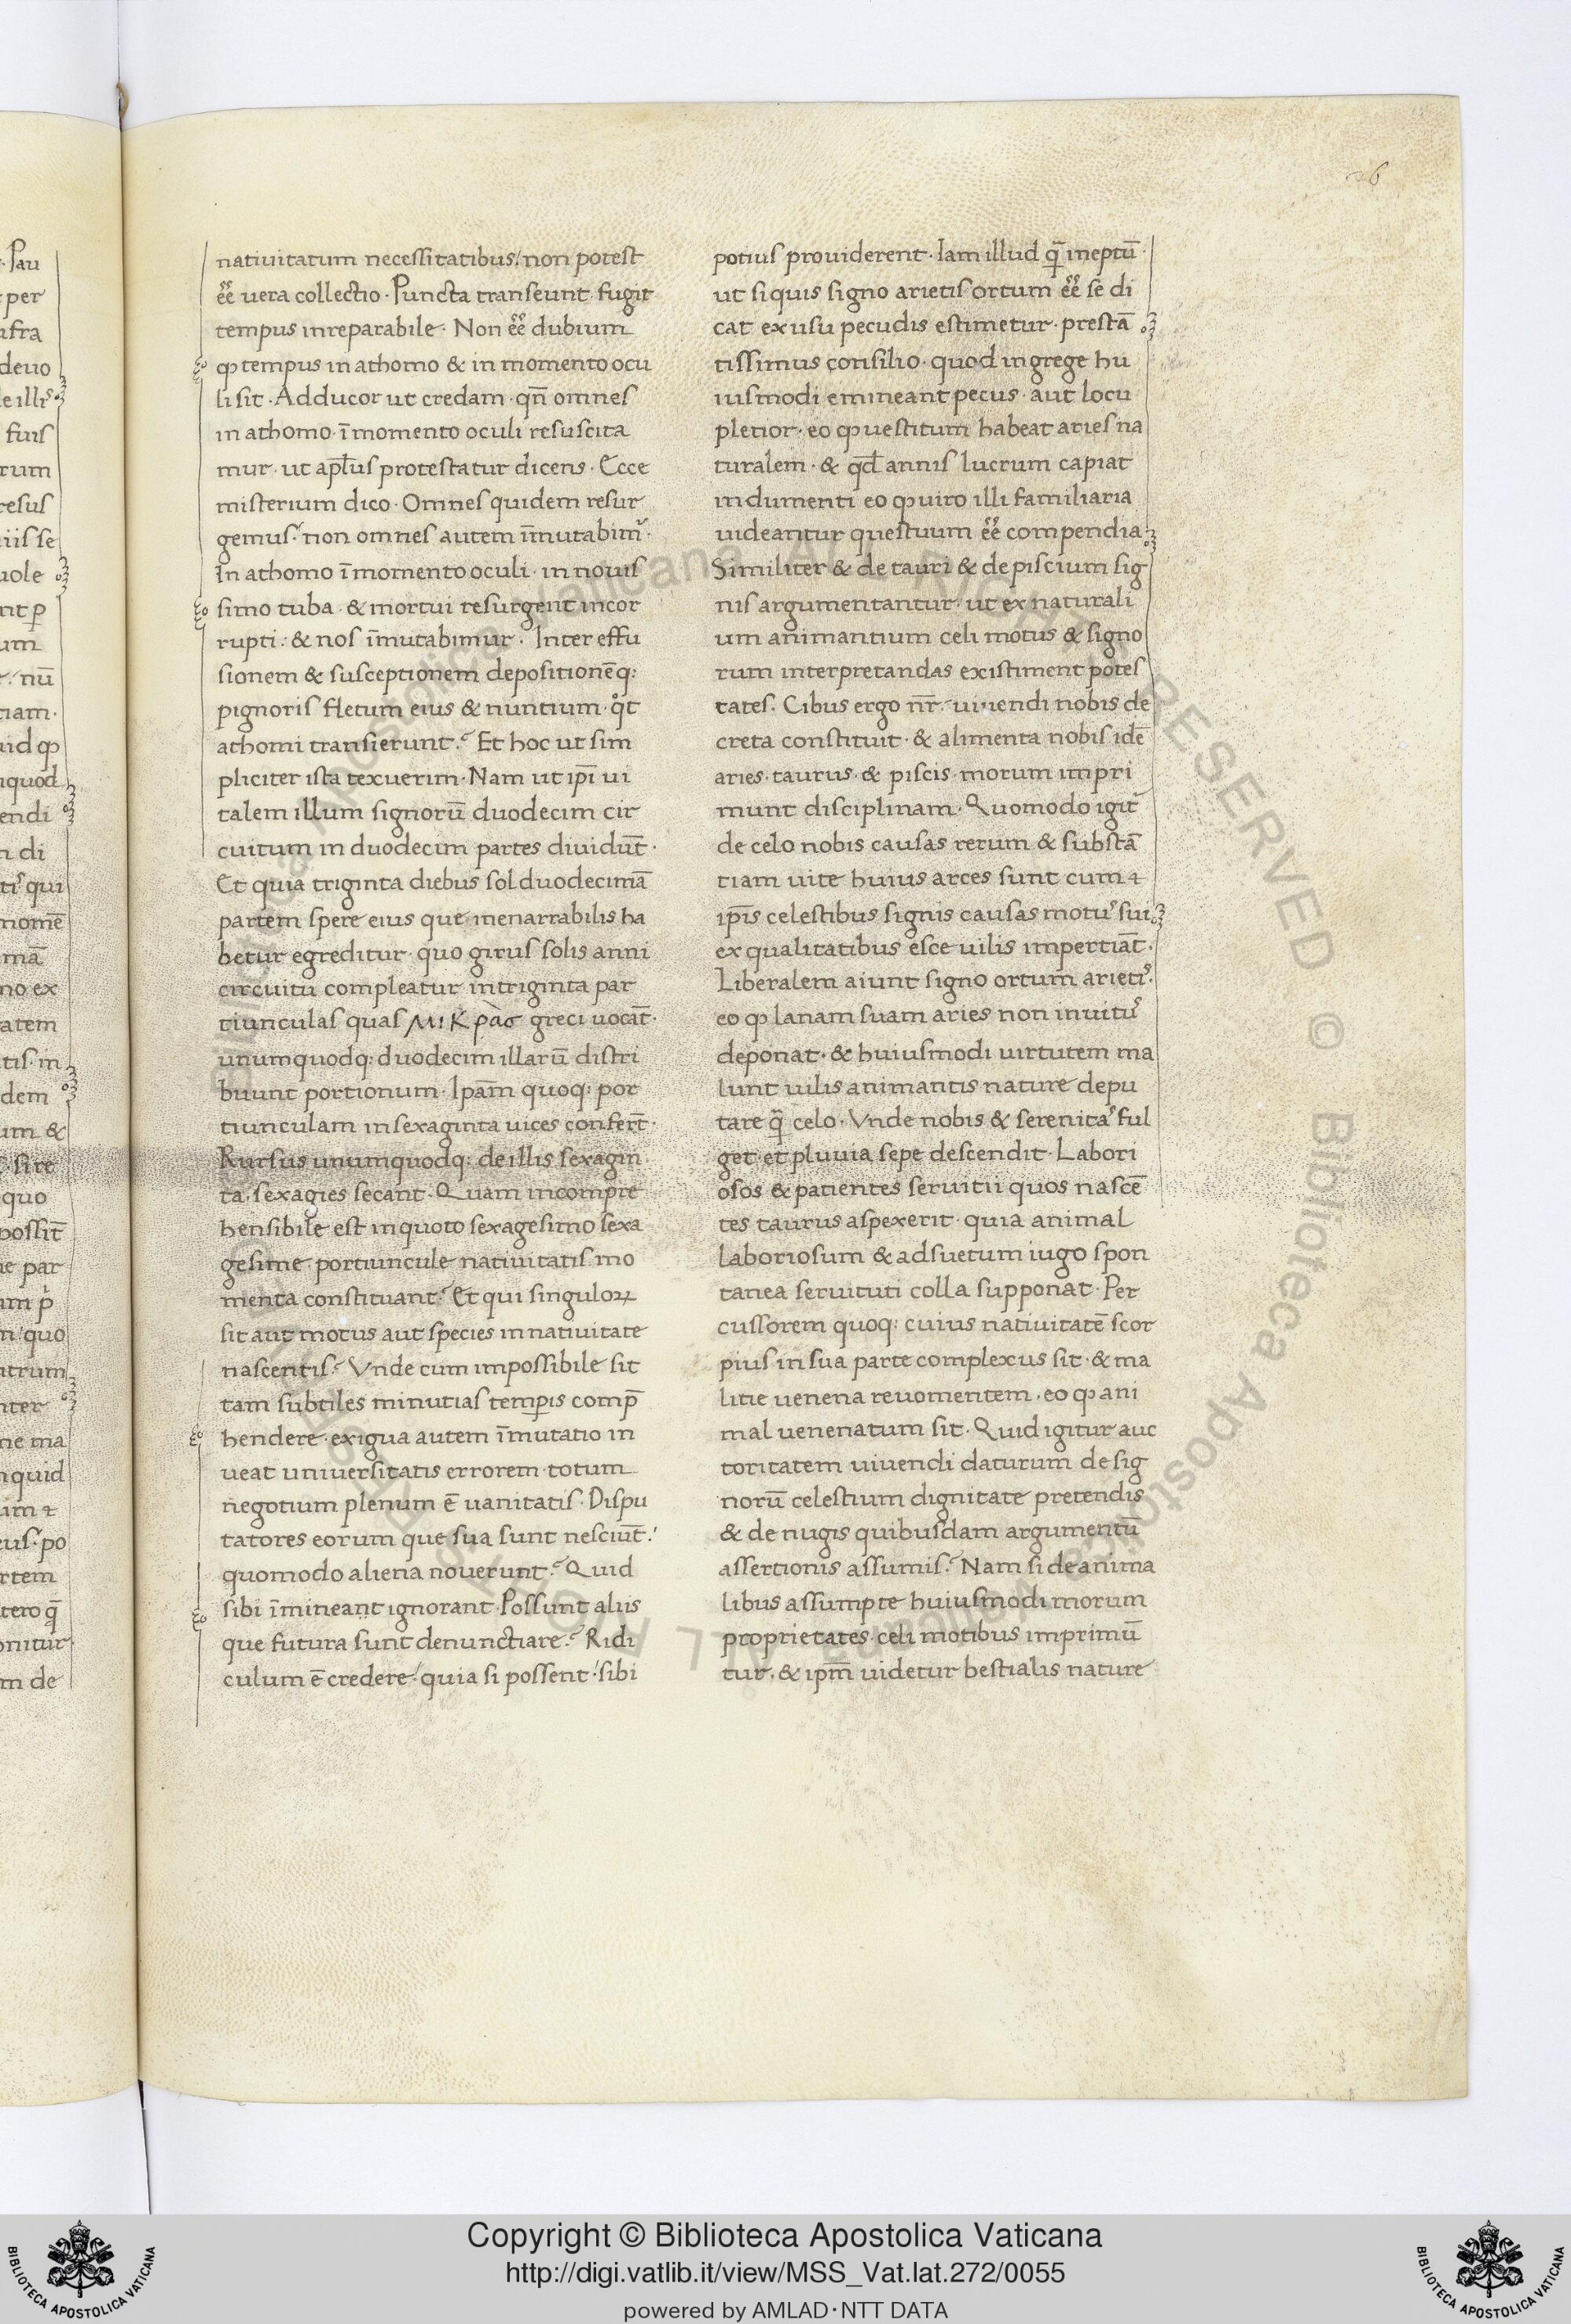 26
natiuitatum necessitatibus! non potest
ēē uera collectio · Puncta transeunt · fugit
tempus inreparabile · Non ēē dubium
ꝙ tempus in athomo & in momento ocu
li sit · Adducor ut credam · qn̄ omnes
in athomo · ī momento oculi resuscita
mur · ut apl̄us protestatur dicens · Ecce
misterium dico · Omnes quidem resur
gemus: non omnes autem īmutabimr̄ ·
In athomo ī momento oculi · in nouis
simo tuba · & mortui resurgent incor
rupti: & nos īmutabimur · Inter effu
sionem & susceptionem depositionēq:
pignoris fletum eius & nuntium · qͦt
athomi transierunt? Et hoc ut sim
pliciter ista texuerim · Nam ut ip̄i ui
talem illum signorū duodecim cir
cuitum in duodecim partes diuidūt ·
Et quia triginta diebus sol duodecimā
partem spere eius que inenarrabilis ha
betur egreditur · quo girus solis anni
circuitu compleatur in triginta par
tiunculas quas ΜΙΚρὰσ greci uocāt ·
unumquodq: duodecim illarū distri
buunt portionum · Ipam̄ quoq: por
tiunculam in sexaginta uices confert̄ ·
Rursus unumquodq: de illis sexagin
ta · sexagies secant · Quam incompre
hensibile est in quoto sexagesimo sexa
gesime portiuncule natiuitatis mo
menta constituant? Et qui singuloꝝ
sit aut motus aut species in natiuitate
nascentis? Vnde cum impossibile sit
tam subtiles minutias temꝑis comp̄
hendere · exigua autem īmutatio in
ueat uniuersitatis errorem · totum
negotium plenum ē uanitatis · Dispu
tatores eorum que sua sunt nesciūt!
quomodo aliena nouerunt? Quid
sibi īmineant ignorant · Possunt aliis
que futura sunt denunctiare? Ridi
culum ē credere! quia si possent! sibi
potius prouiderent · Iam illud q̄ ineptū ·
ut si quis signo arietis ortum ēē se di
cat ex usu pecudis estimetur · prestā
tissimus consilio · quod in grege hu
iusmodi emineant pecus · aut locu
pletior · eo ꝙ uestitum habeat aries na
turalem · & qd̄ annis lucrum capiat
indumenti eo ꝙ uiro illi familiaria
uideantur questuum ēē compendia ·
Similiter & de tauri & de piscium sig
nis argumentantur · ut ex naturali
um animantium celi motus & signo
rum interpretandas existiment potes
tates · Cibus ergo nr̄ · uiuendi nobis de
creta constituit · & alimenta nobis idē
aries · taurus · & piscis · morum impri
munt disciplinam · Quomodo igit᷑
de celo nobis causas rerum & substā
tiam uite huius arces sunt cum ⁊
ip̄is celestibus signis causas motus sui
ex qualitatibus esce uilis impertiāt ·
Liberalem aiunt signo ortum arietis ·
eo ꝙ lanam suam aries non inuitus
deponat · & huiusmodi uirtutem ma
lunt uilis animantis nature depu
tare q̄ celo · Vnde nobis & serenitas ful
get · et pluuia sepe descendit · Labori
osos & patientes seruitii quos nascē
tes taurus aspexerit · quia animal
laboriosum & adsuetum iugo spon
tanea seruituti colla supponat · Per
cussorem quoq: cuius natiuitatē scor
pius in sua parte complexus sit · & ma
litie uenena reuomentem · eo ꝙ ani
mal uenenatum sit · Quid igitur auc
toritatem uiuendi daturum de sig
norū celestium dignitate pretendis
& de nugis quibusdam argumentū
assertionis assumis? Nam si de anima
libus assumpte huiusmodi morum
proprietates celi motibus imprimū
tur · & ipm̄ uidetur bestialis nature
Copyright © Biblioteca Apostolica Vaticana
http://digi.vatlib.it/view/MSS_Vat.lat.272/0055
powered by AMLAD·NTT DATA
BIBLIOTECA APOSTOLICA VATICANA
BIBLIOTECA APOSTOLICA VATICANA